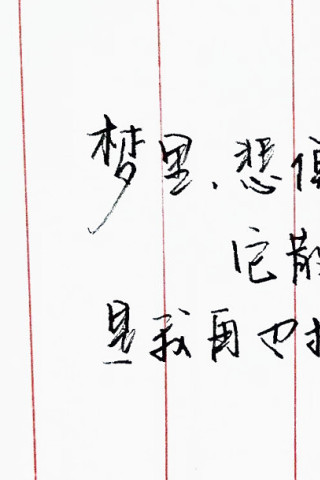 梦里、悲
它散
是我再也